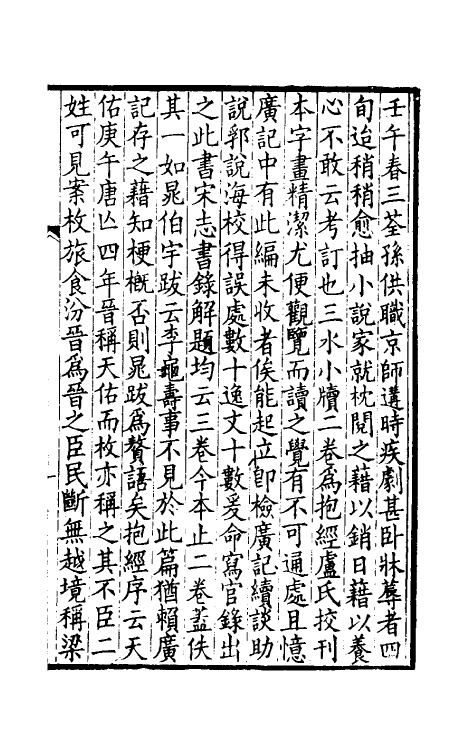 壬午春三荃孫供職京師遘時疾劇甚卧牀蓐者四
旬迨稍稍愈抽小說家就枕閱之藉以銷日藉以養
心不敢云考訂也三水小牘二卷爲抱經盧氏挍刊
本字畫精潔尤便觀覽而讀之覺有不可通處且憶
廣記中有此編未收者俟能起立卽檢廣記續談助
說郛說海校得誤處數十逸文十數爰命寫官錄出
之此書宋志書錄解題均云三卷今本止二卷蓋佚
其一如晁伯宇跋云李龜壽事不見於此篇猶賴廣
記存之藉知梗槪否則晁跋爲贅語矣抱經序云天
佑庚午唐亾四年晉稱天佑而枚亦稱之其不臣二
姓可見案枚旅食汾晉爲晉之臣民斷無越境稱梁